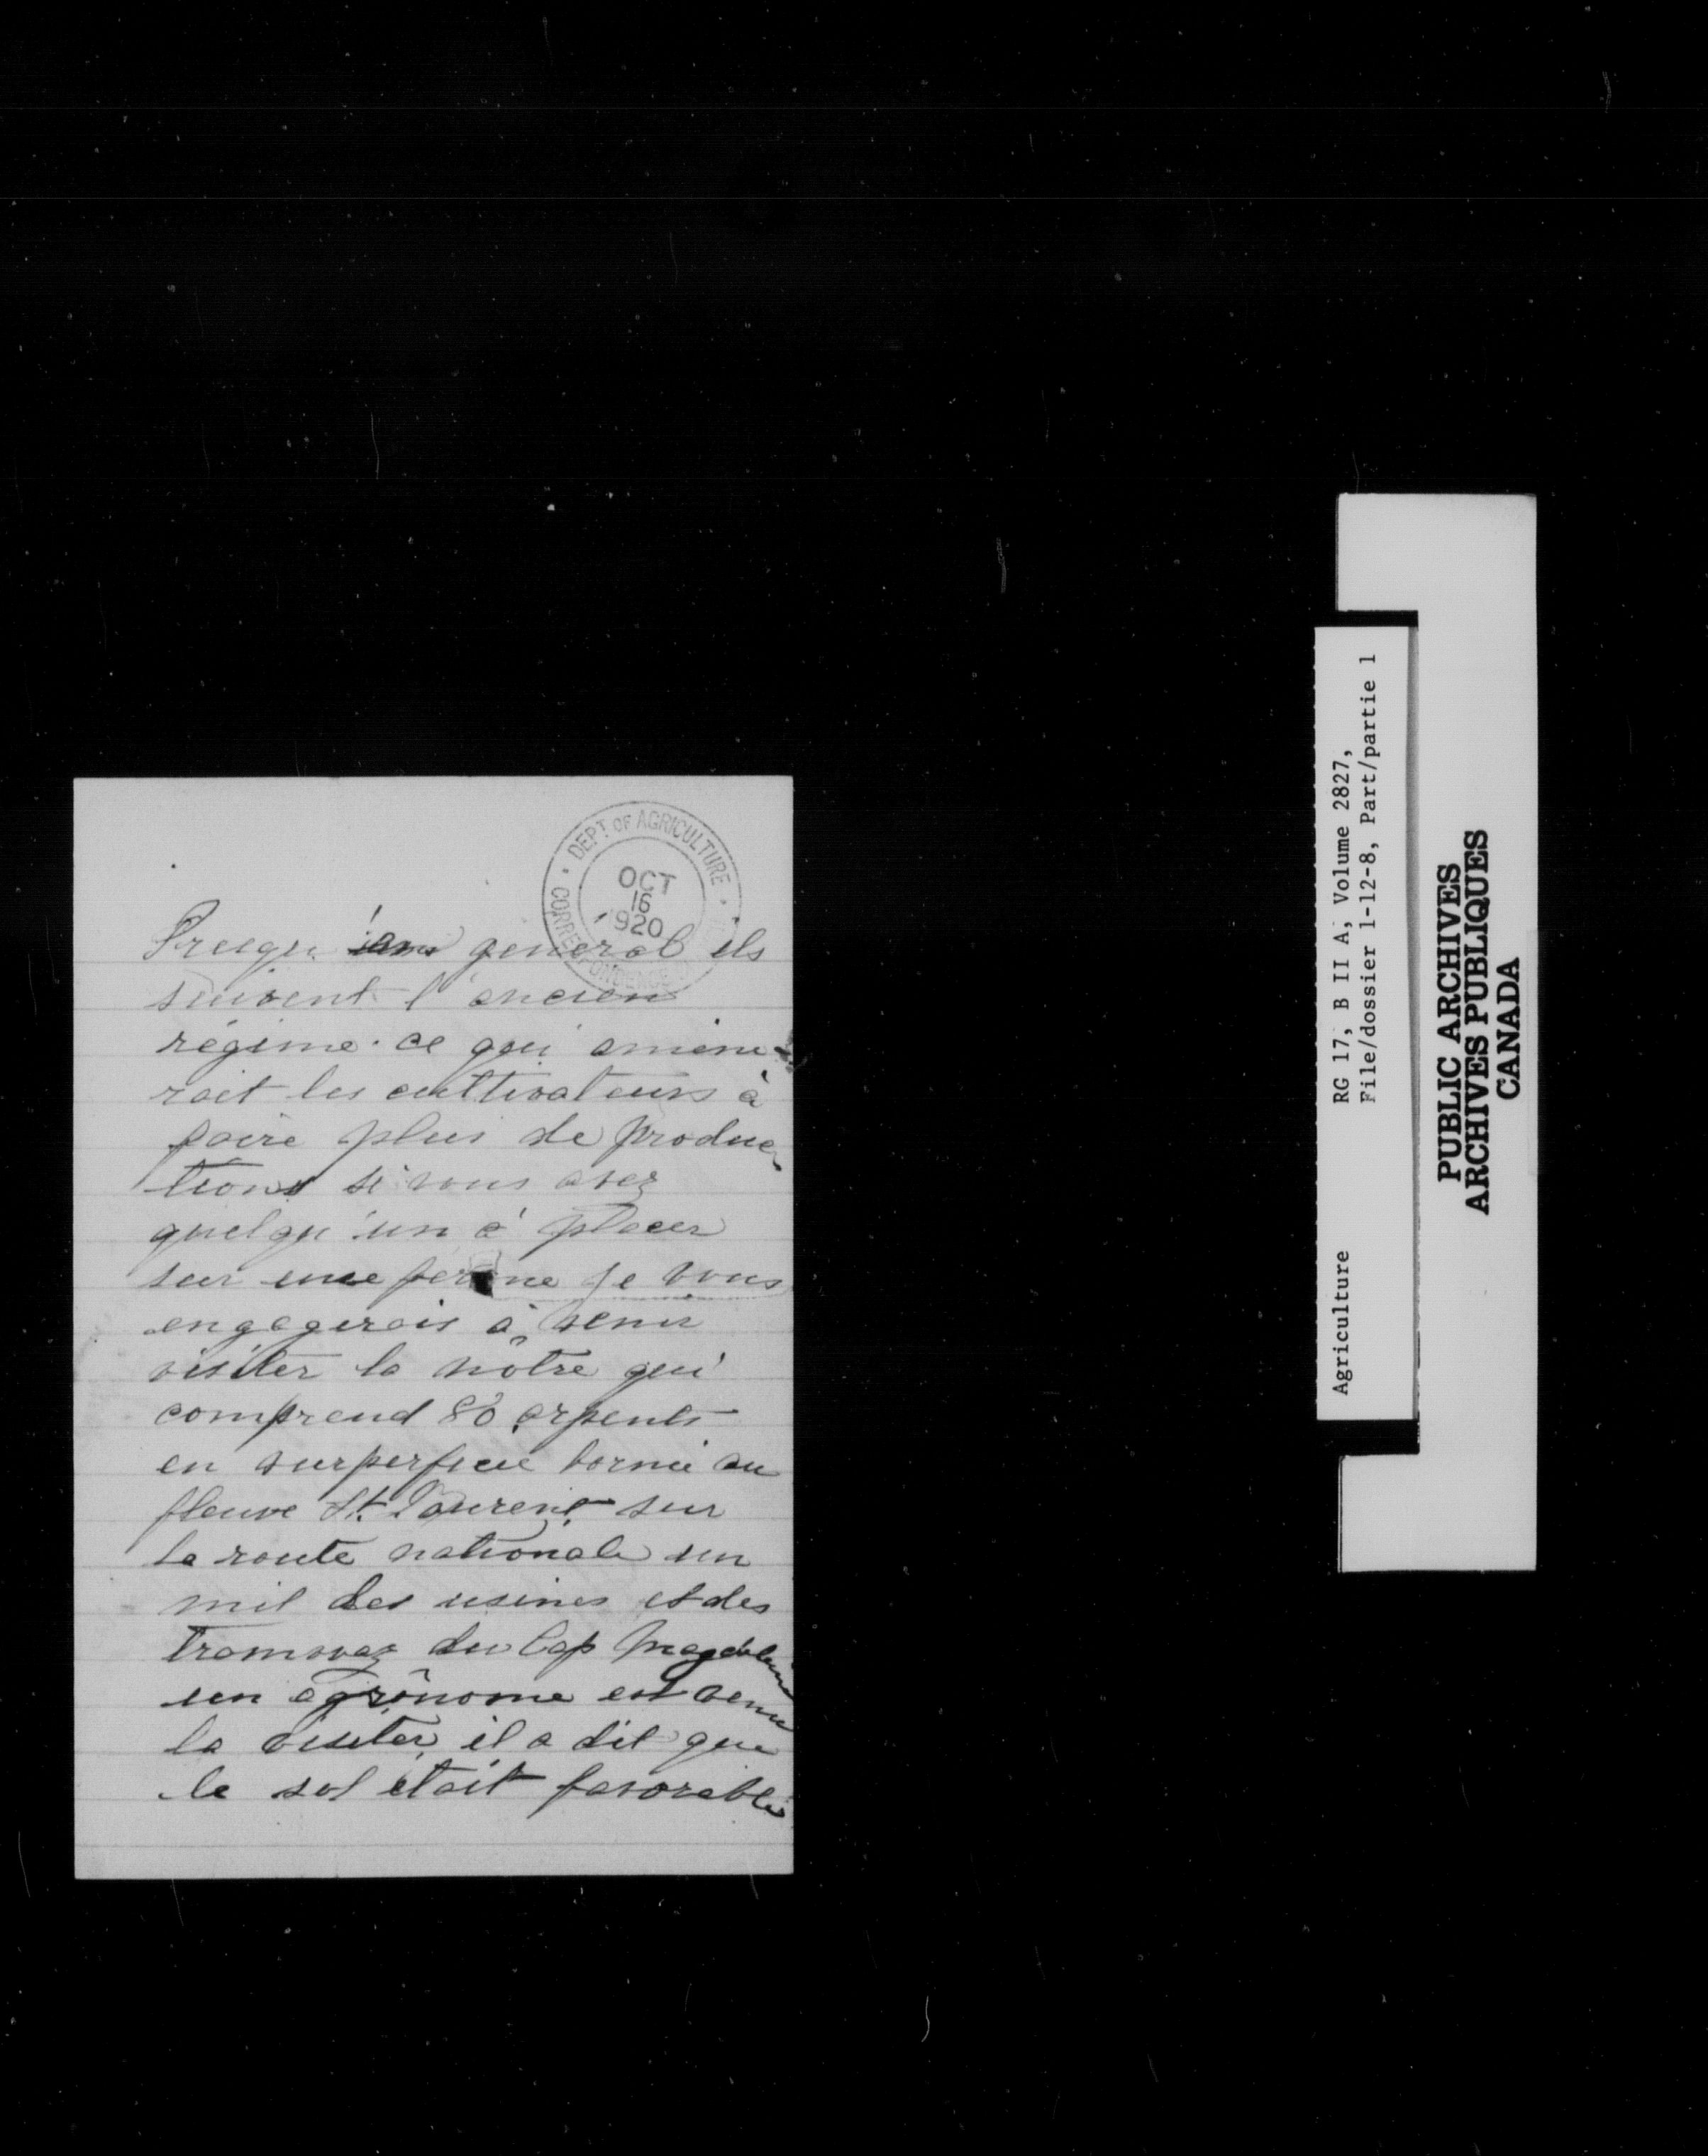 DEPT OF AGRICULTURE
OCT
16
1920
CORRESPONDENCE
Presqu'en général ils
suivent l'ancien
régime. ce qui amène-
rait les cultivateurs à
faire plus de produc
tions si vous avez
quelqu'un à placer
sur une ferme je vous
engagerais à venir
visiter la nôtre qui
comprend 80 arpents
en surperficie bornée au
fleuve St. Laurent sur
la route nationale un
mil des usines et des
tramways du Cap Magdeleine
un agrônome est venu
la visiter il a dit que
le sol était favorable
Agriculture RG 17, B II A, Volume 2827,
File/dossier 1-12-8, Part/partie 1
PUBLIC ARCHIVES
ARCHIVES PUBLIQUES
CANADA